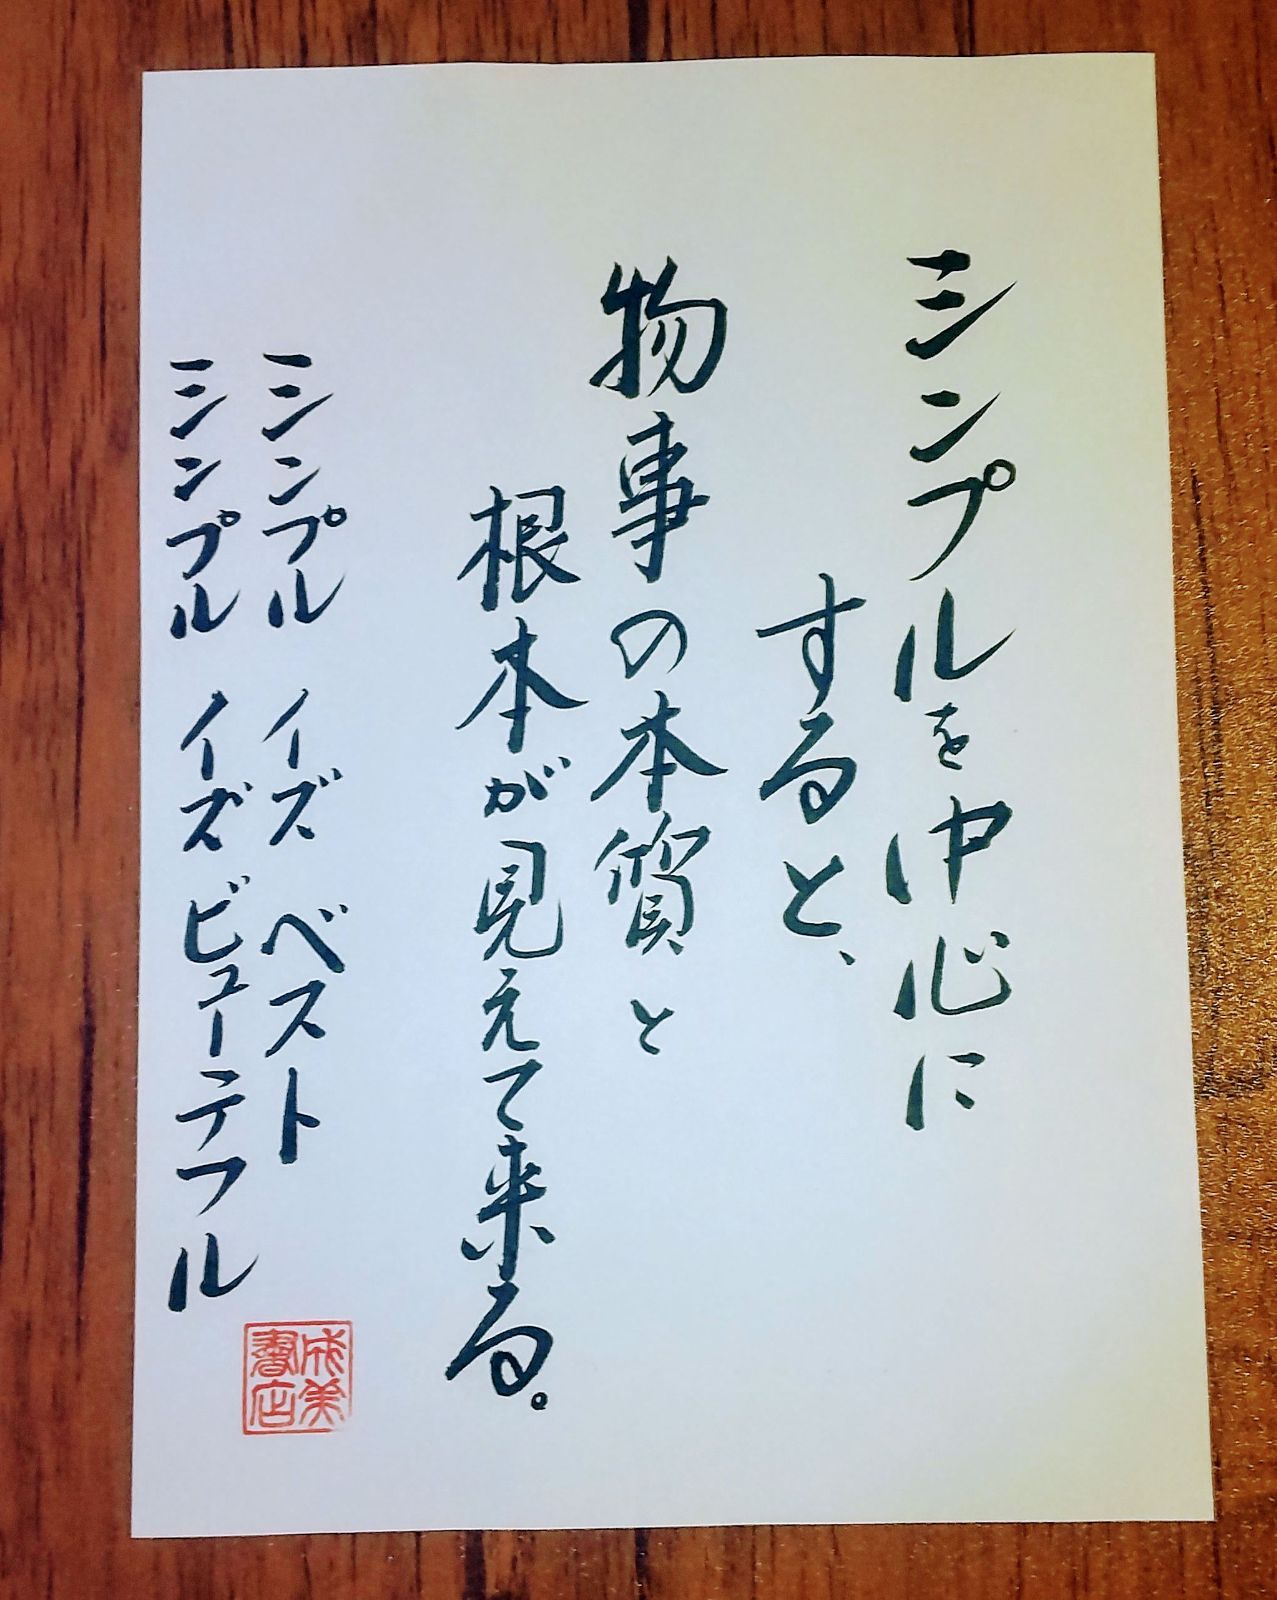 シンプルを中心に
すると、
物事の本質と
根本が見えて来る。
シンプル イーズ ベスト
シンプル イーズ ビューテフル
成美
書店